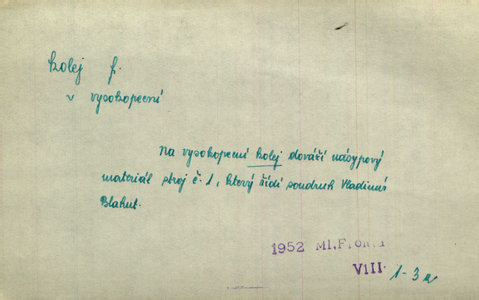 kolej f.
v vysokopecní
Na vysokopecní kolej dováží násypový
materiál stroj č. 1, který řídí soudruh Vladimír
Blahut.
1952 Ml. Fronta
VIII. 1-3a